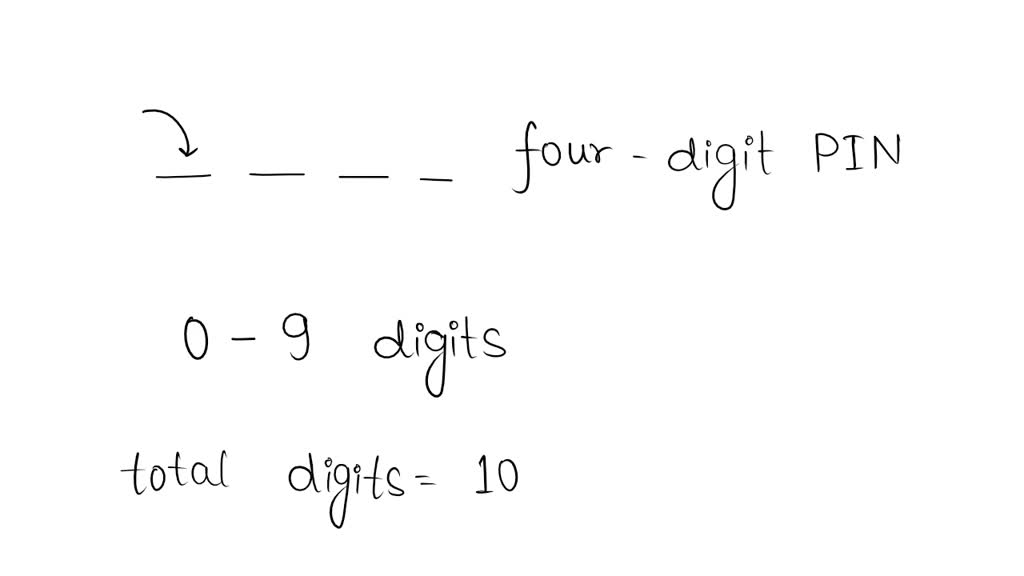 _ _ _ _ four - digit PIN
0 - 9 digits
total digits = 10